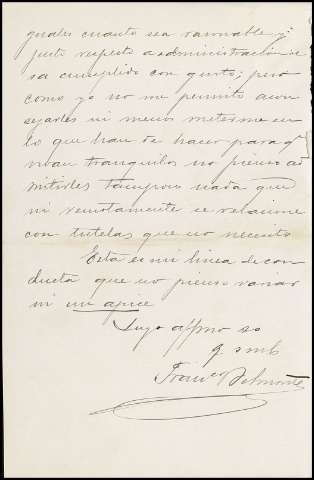 guales cuanto sea razonable y
justo respecto a administración se
sa cumplido con gusto; pero
como yo no me permito acon
sejarles ni menos meterme en
lo que han de hacer para q
vivan tranquilos no pienso ad
mitirles tampoco nada que
ni remotamente se relacione
con tutelas que no necesito
Esta es mi linea de con
ducta que no pienso variar
ni un apice
Suyo affmo ss
q s m b
Franco Belmonte